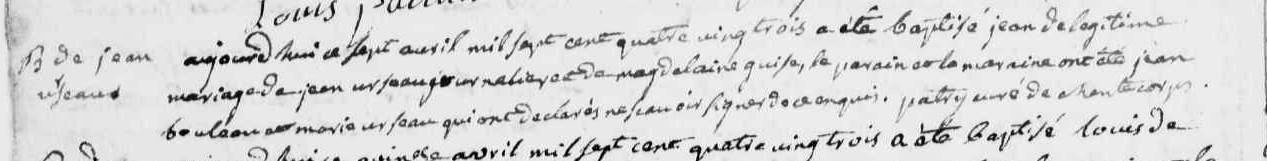 Louis
B de jean
urseau
aujourd hui ce sept avril mil sept cent quatre vingtrois a été baptisé jean de legitime
mariage de jean urseau journalier et de magdelaine quise, le parain et la maraine ont été jean
bouleau et marie urseau qui ont declarés ne scavoir signer de ce enquis. patry curé de chantecorps.
avril mil sept cent quatre vingtrois a été baptisé louis de